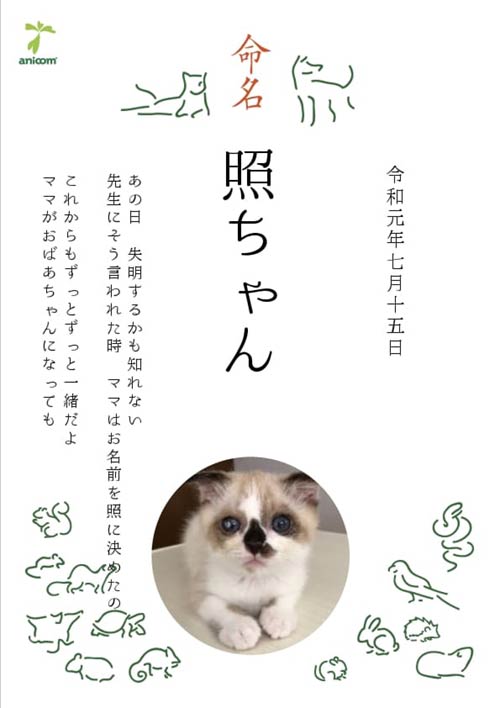 anicom
命名
令和元年七月十五日
照ちゃん
あの日　失明するかも知れない
先生にそう言われた時　ママはお名前を照に決めたの
これからもずっとずっと一緒だよ
ママがおばあちゃんになっても